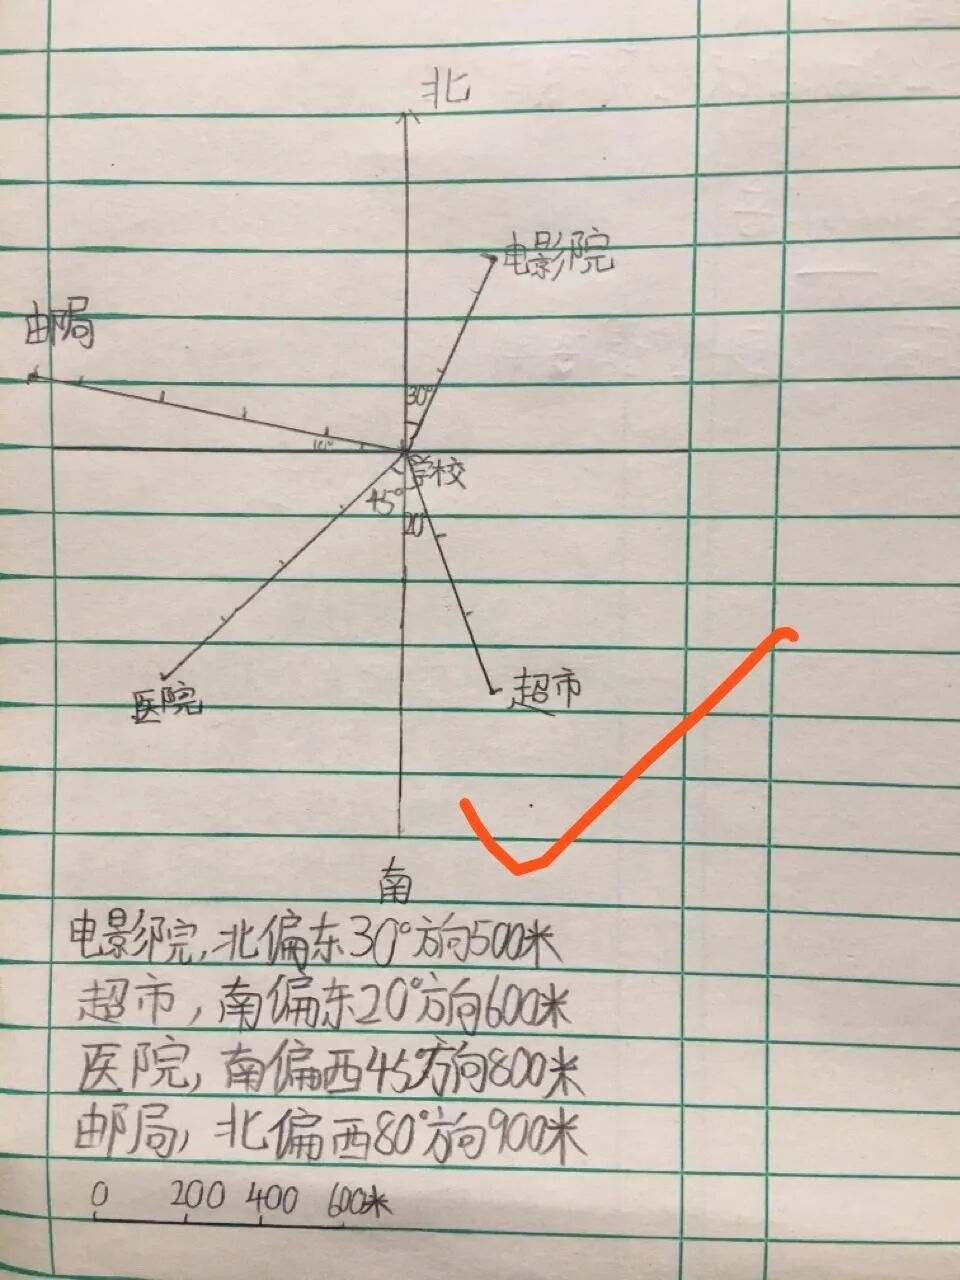 北
电影院
邮局
30°
10°
学校
45°
20°
医院
超市
南
电影院,北偏东30°方向500米
超市,南偏东20°方向600米
医院,南偏西45°方向800米
邮局,北偏西80°方向900米
0 200 400 600米